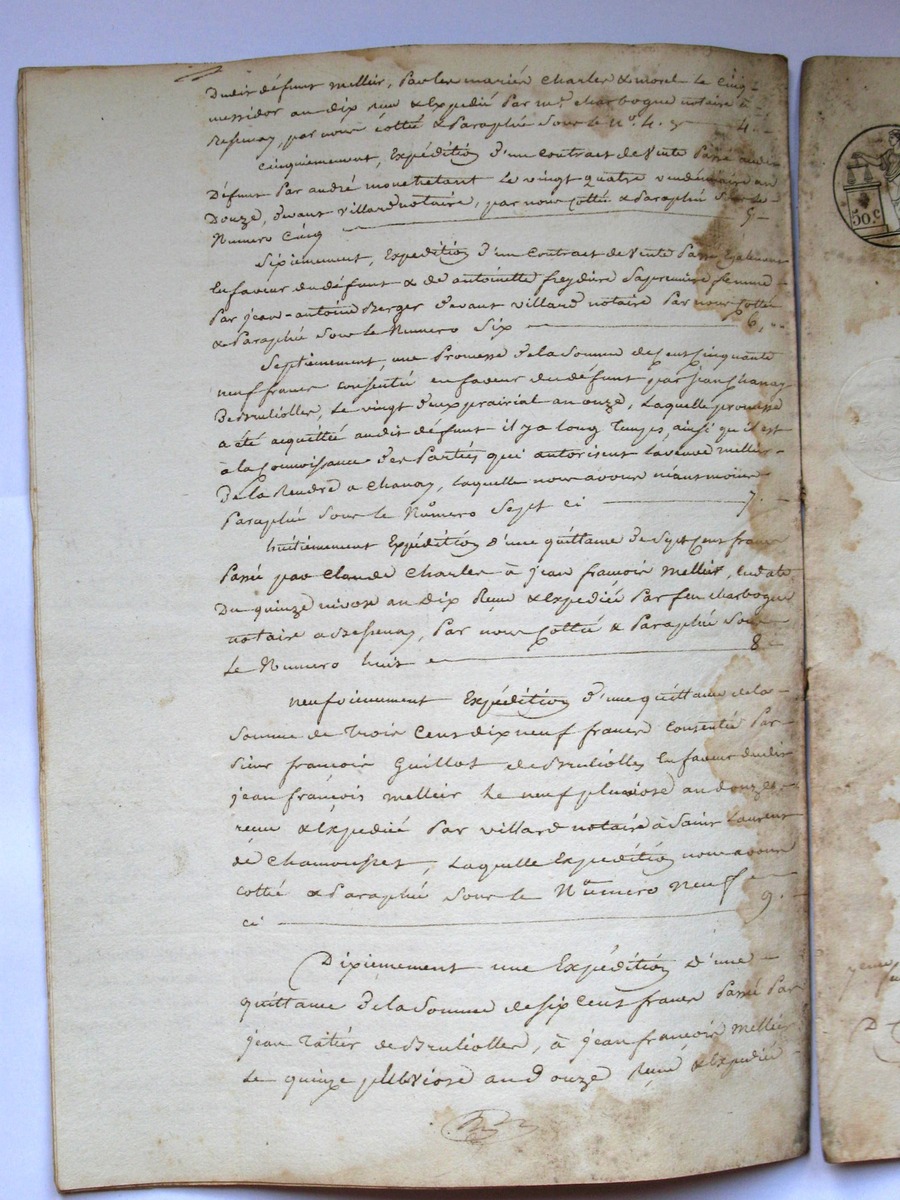 dudit défunt melleir, par les mariés charles & morel le cinq
messidor an dix reçu & expédié par me charbogne notaire à
Bessenay, par nous cotté & paraphé sous le no. 4. 4.
Cinquiemement, Expédition d'un contract de vente passé audit
défunt par andré monchetant le vingt quatre vendemiaire an
Douze, devant villard notaire, par nous cotté & paraphé sous le
Numero Cinq 5
Sixiemement, Expédition d'un contract de vente passé également
en faveur du défunt & de antoinette freydiere sa premiere femme
par jean-antoine Berger devant villard notaire par nous cotté
& paraphé sous le Numero Six 6.
Septiemement, une promesse de la somme de cent cinquante
neuf francs consentie en faveur du défunt par jean Chanay
de Brulliolles, le vingt deux prairial an onze, laquelle promesse
a été acquittée audit défunt il y a long temps, ainsi qu'il est
à la connoissance des parties qui autorisent la veuve melleir
de la rendre a chanay, laquelle nous avons néanmoins
paraphé sous le Numero Sept ci 7.
huitiemement Expédition d'une quittance de sept cent francs
passé par Claude Charles à jean françois melleir, en date
du quinze nivose an dix reçu & expédiée par feu charbogne
notaire a Bessenay, par nous cotté & paraphé sous
le Numero huit 8
neufviemement Expédition d'une quittance de la
somme de trois cent dix neuf francs consentie par
sieur françois Guillot de Brulliolles en faveur dudit
jean françois melleir le neuf pluviose an douze
reçu & expedié par villard notaire à Saint Laurent
de chamousset, laquelle Expédition nous avons
cotté & paraphé sous le Numero neuf
ci 9.
Dixiemement une Expédition d'une
quittance de la somme de six cent francs passé par
jean de Brulliolles, à jean françois melleir
le quinze pluviose an douze reçu & expédié
50 c